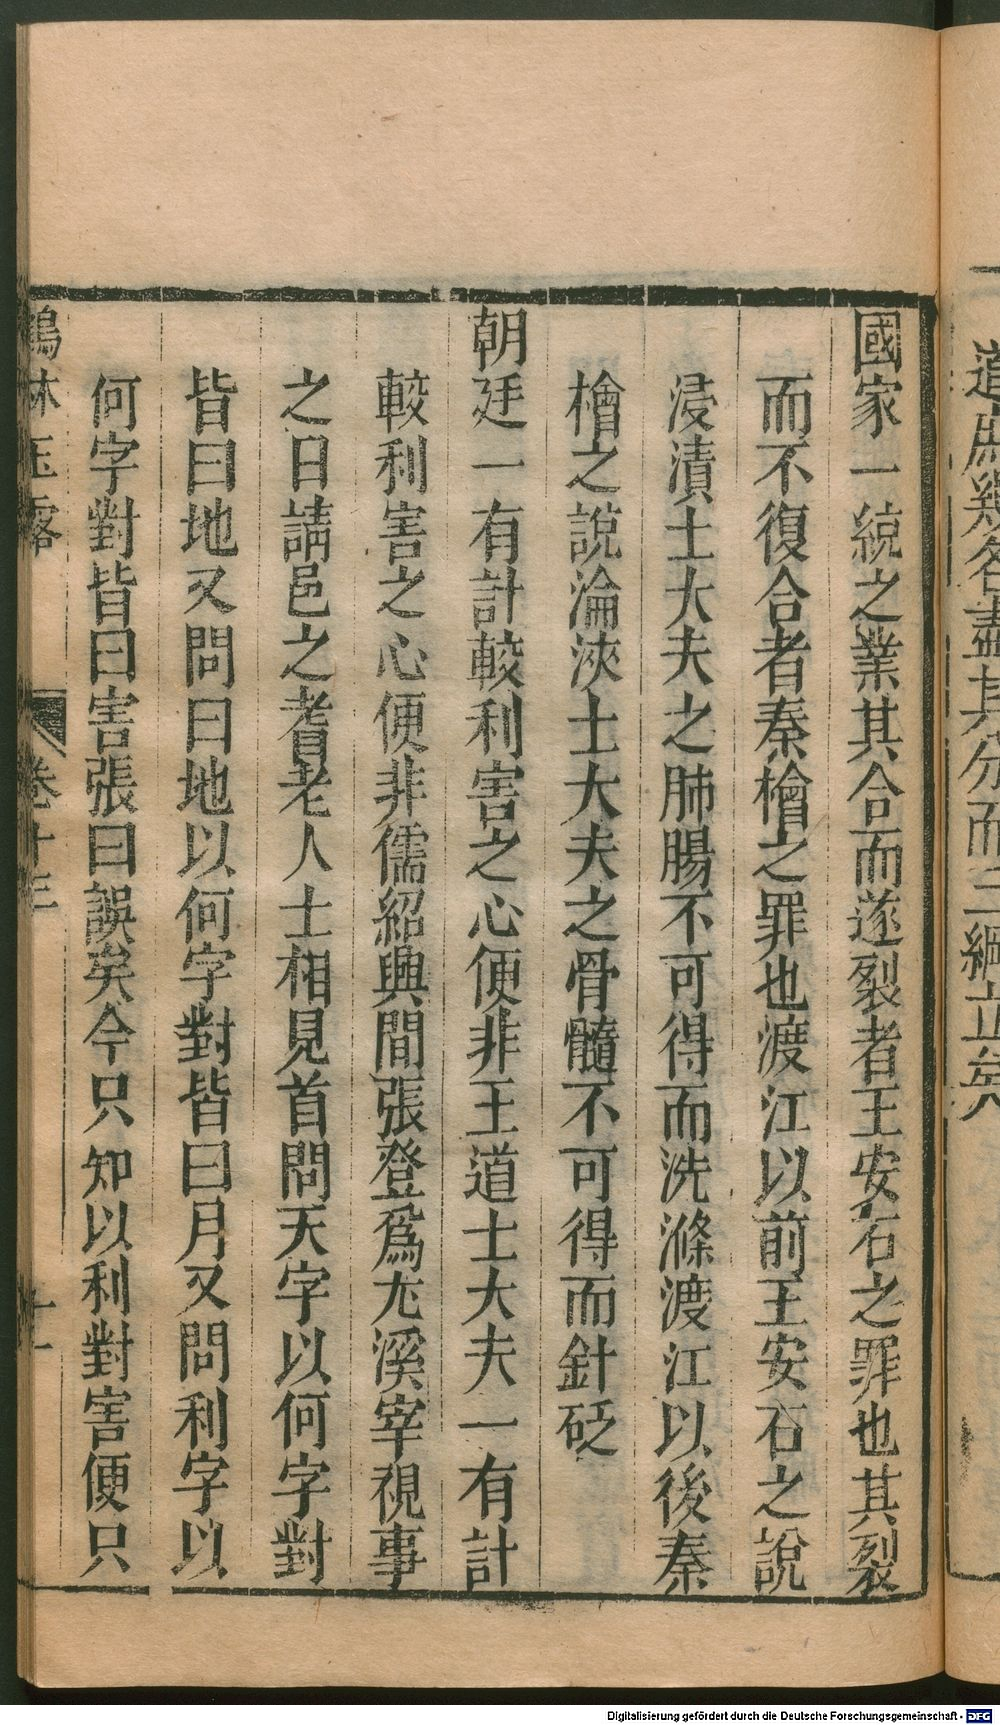 道庶幾名盡其分而三綱立矣
國家一統之業其合而遂裂者王安石之罪也其裂
而不復合者秦檜之罪也渡江以前王安石之說
浸漬士大夫之肺腸不可得而洗滌渡江以後秦
檜之說淪浹士大夫之骨髓不可得而針砭
朝廷一有計較利害之心便非王道士大夫一有計
較利害之心便非儒紹興間張登爲尤溪宰視事
之日請邑之耆老人士相見首問天字以何字對
皆曰地又問日地以何字對皆曰月又問利字以
何字對皆曰害張曰誤矣今只知以利對害便只
鶴林玉露 卷十三 十一
Digitalisierung gefördert durch die Deutsche Forschungsgemeinschaft - DFG